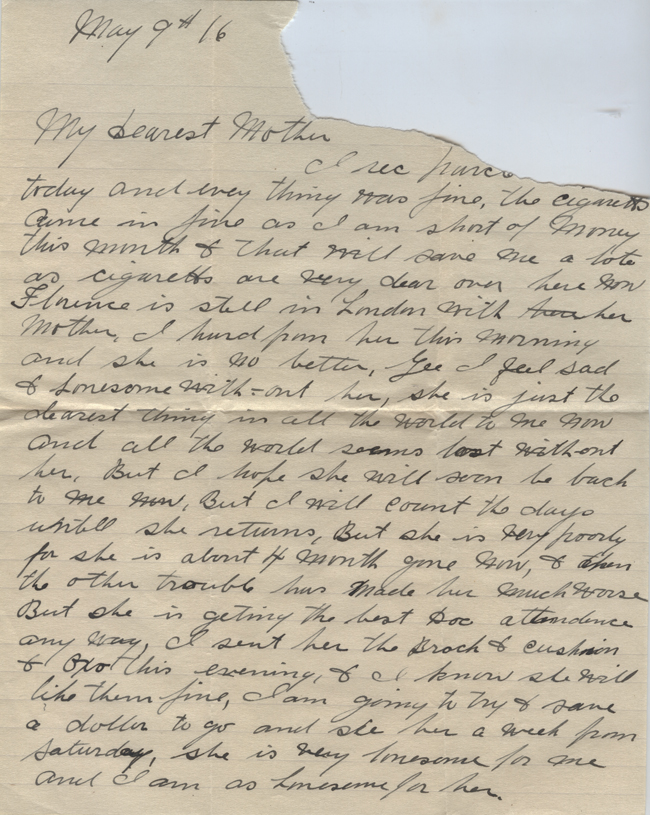 May 9th 16
My Dearest Mother
I rec parce
today and evey thing was fine, the cigaretts
Came in fine as I am short of Money
this month & that will save me a lote
as cigaretts are very dear over here now
Florence is still in London with her
Mother, I hurd from her this Morning
and she is no better, Gee I feel sad
& Lonesome with-out her, she is just the
dearest thing in all the world to me now
and all the world seems lost without
her, But I hope she will soon be back
to me now, But I will count the days
untill she returns, But she is very poorly
for she is about 4 month gone now, & then
the other trouble has made her much worse
But she is geting the best Doc attendence
any way, I sent her the Broch & cushion
& Oxo this evening, & I know she will
like them fine, I am going to try & save
a dollar to go and see her a week from
Saturday, she is very lonesome for me
and I am as Lonesome for her.